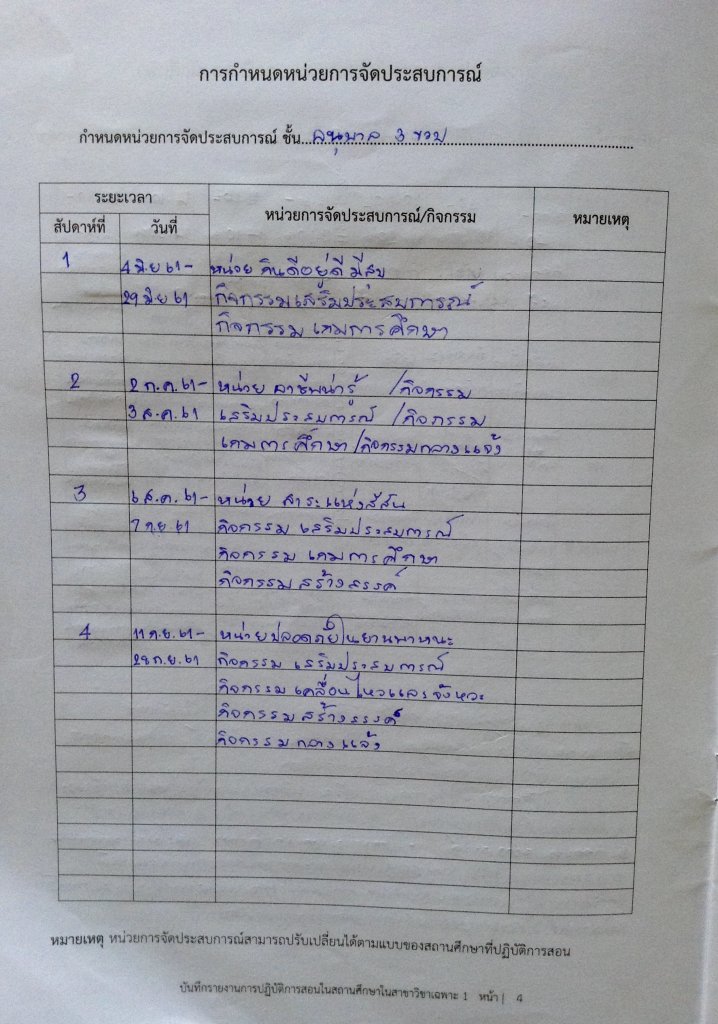 การกำหนดหน่วยการจัดประสบการณ์
กำหนดหน่วยการจัดประสบการณ์ ชั้น อนุบาล 3 ขวบ
ระยะเวลา หน่วยการจัดประสบการณ์/กิจกรรม หมายเหตุ
สัปดาห์ที่ วันที่
1 4 มิ.ย 61- หน่วย กินดีอยู่ดีมีสุข
29 มิ.ย 61 กิจกรรมเสริมประสบการณ์
กิจกรรม เกมการศึกษา
2 2 ก.ค. 61- หน่วย อาชีพน่ารู้ /กิจกรรม
3 ส.ค. 61 เสริมประสบการณ์ /กิจกรรม
เกมการศึกษา /กิจกรรมกลางแจ้ง
3 6 ส.ค. 61- หน่วย สาระแห่งสีสัน
7 ก.ย 61 กิจกรรม เสริมประสบการณ์
กิจกรรม เกมการศึกษา
กิจกรรม สร้างสรรค์
4 11 ก.ย. 61- หน่วยปลอดภัยในยานพาหนะ
28 ก.ย. 61 กิจกรรม เสริมประสบการณ์
กิจกรรม เคลื่อนไหวและจังหวะ
กิจกรรม สร้างสรรค์
กิจกรรม กลางแจ้ง
หมายเหตุ หน่วยการจัดประสบการณ์สามารถปรับเปลี่ยนได้ตามแบบของสถานศึกษาที่ปฏิบัติการสอน
บันทึกรายงานการปฏิบัติการสอนในสถานศึกษาในสาขาวิชาเฉพาะ 1 หน้า | 4